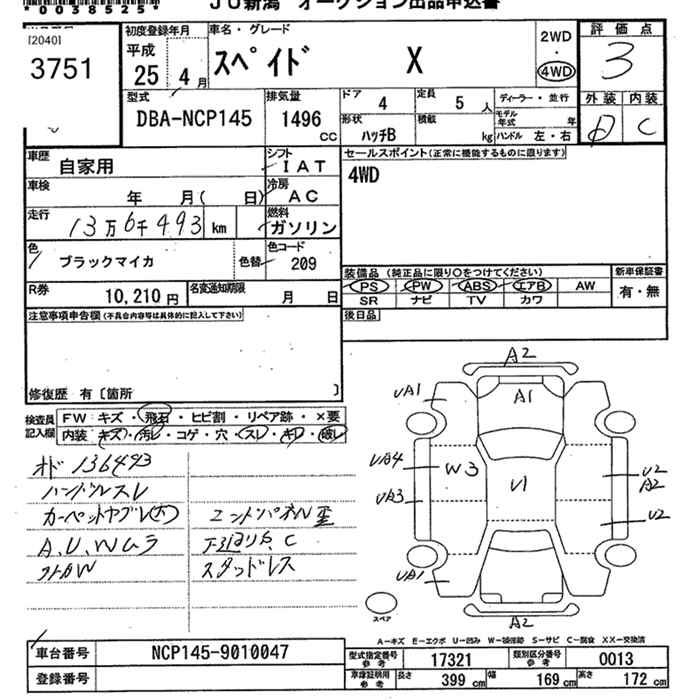 *0038525*
JU新潟 オークション出品申込書
[2040]
3751
初度登録年月
平成
25年 4月
車名・グレード
スペイド X
2WD
・
4WD
評価点
3
外装 内装
D C
型式
DBA-NCP145
排気量
1496
CC
ドア 4
定員 5人
形状 ハッチB
積載 kg
ディーラー・並行
モデル年式 年
ハンドル 左・右
車歴 自家用
シフト IAT
車検 年 月( 日)
冷房 AC
走行 13万6千493 km
燃料 ガソリン
色 ブラックマイカ
色替
色コード 209
R券 10,210円
名変通知期限 月 日
セールスポイント(正常に機能するものに限ります)
4WD
装備品(純正品に限り○をつけてください)
PS PW ABS エアB AW
SR ナビ TV カワ
新車保証書
有・無
後日品
注意事項申告欄(不具合内容等は具体的に記入して下さい)
修復歴 有〔箇所 〕
検査員記入欄
FW キズ・飛石・ヒビ割・リペア跡・×要
内装 キズ・汚レ・コゲ・穴・スレ・キレ・破レ
オド 136493
ハンドルスレ
カーペットヤブレ(大)
A.U.Wムラ
エンドパネル歪
下廻りS.C
スタッドレス
A2
UA1
A1
UA4
W3
UA3
U1
U2
A2
U2
UA1
A2
スペア
A−キズ E−エクボ U−凹み W−補修跡 S−サビ C−腐食 XX−交換済
車台番号 NCP145-9010047
登録番号
型式指定番号 参考 17321
類別区分番号 参考 0013
車庫証明用 参考
長さ 399 cm
幅 169 cm
高さ 172 cm